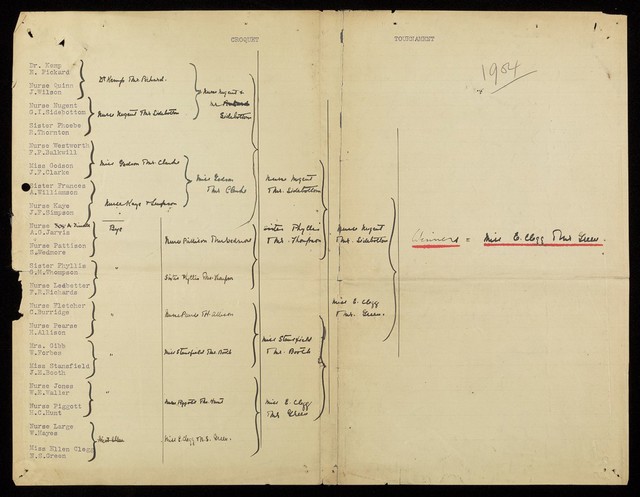 CROQUET
TOURNAMENT
1904
Dr. Kemp
E. Pickard
Nurse Quinn
J. Wilson
Nurse Nugent
G.I. Sidebottom
Sister Phoebe
E. Thornton
Nurse Westworth
F.P. Balkwill
Miss Godson
J.F. Clarke
Sister Frances
A. Williamson
Nurse Kaye
J.F. Simpson
Nurse
A.G. Jarvis
Nurse Pattison
S. Wedmore
Sister Phyllis
G.H. Thompson
Nurse Leebetter
F.R. Richards
Nurse Fletcher
C. Burridge
Nurse Pearse
H. Allison
Mrs. Gibb
W. Forbes
Miss Stansfield
J.M. Booth
Nurse Jones
W.E. Waller
Nurse Piggott
H.C. Hunt
Nurse Large
W. Hayes
Miss Ellen Clegg
N.S. Green
Dr Kemp & Mr Pickard.
Nurse Nugent & Mr Sidebottom
Miss Godson & Mr Clarke
Nurse Kaye & Simpson
Byes
"
"
"
"
"
Nurse Nugent &
Mr
Sidebottom
Miss Godson
& Mr Clarke
Nurse Pattison & Mr Wedmore
Sister Phyllis & Mr Thompson
Nurse Pearse & H. Allison
Miss Stansfield & Mr Booth
Nurse Piggott & Mr Hunt
Miss E Clegg & N.S. Green.
Nurse Nugent
& Mr. Sidebottom
Sister Phyllis
& Mr. Thompson
Miss Stansfield
& Mr. Booth
Miss E. Clegg
& Mr Green
Nurse Nugent
& Mr. Sidebottom
Miss E. Clegg
& Mr. Green.
Winners = Miss E. Clegg & Mr Green.